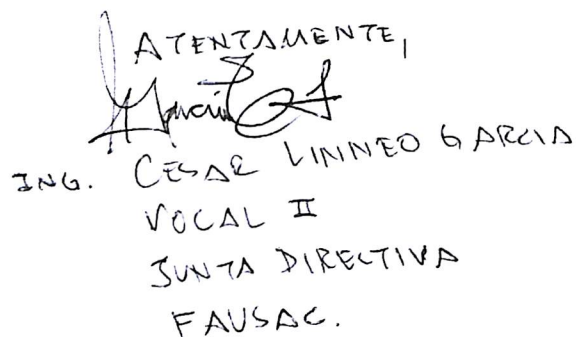 ATENTAMENTE,
ING. CESAR LINNEO GARCIA
VOCAL II
JUNTA DIRECTIVA
FAUSAC.